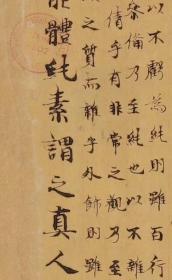 以不虧為純則雖百行
參備乃至純也以不雜
倩乎有非常之觀乃至
之質而雜乎外飾則雖
能體純素謂之真人